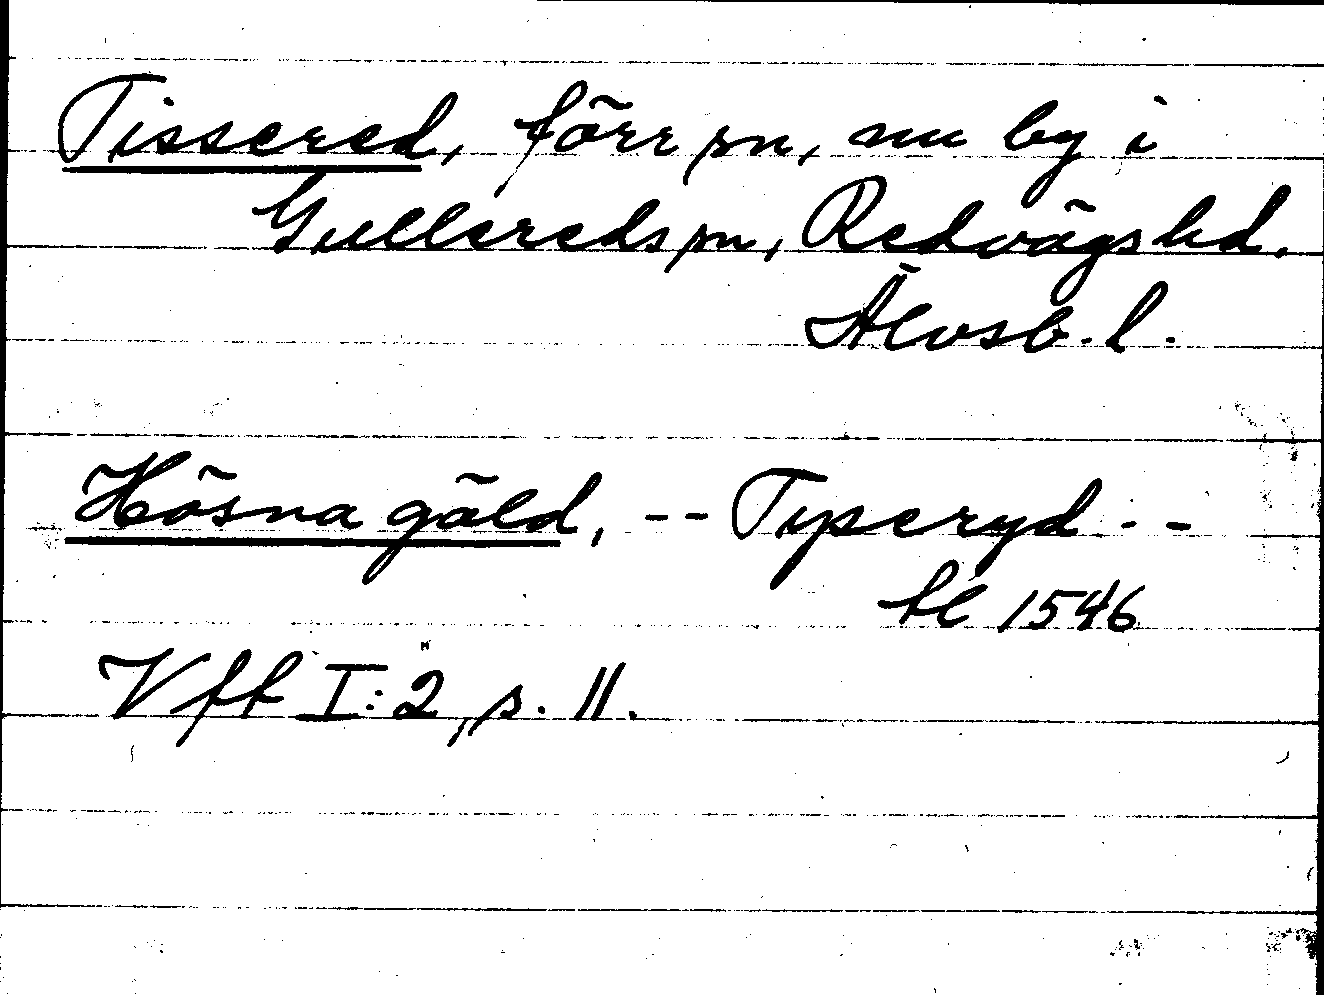 Tissered, förr sn, nu by i
Gullereds sn, Redvägs hd.
Älvsb. l.
Hösna gäld, -- Typeryd --
1546
Vff I:2, s. 11.